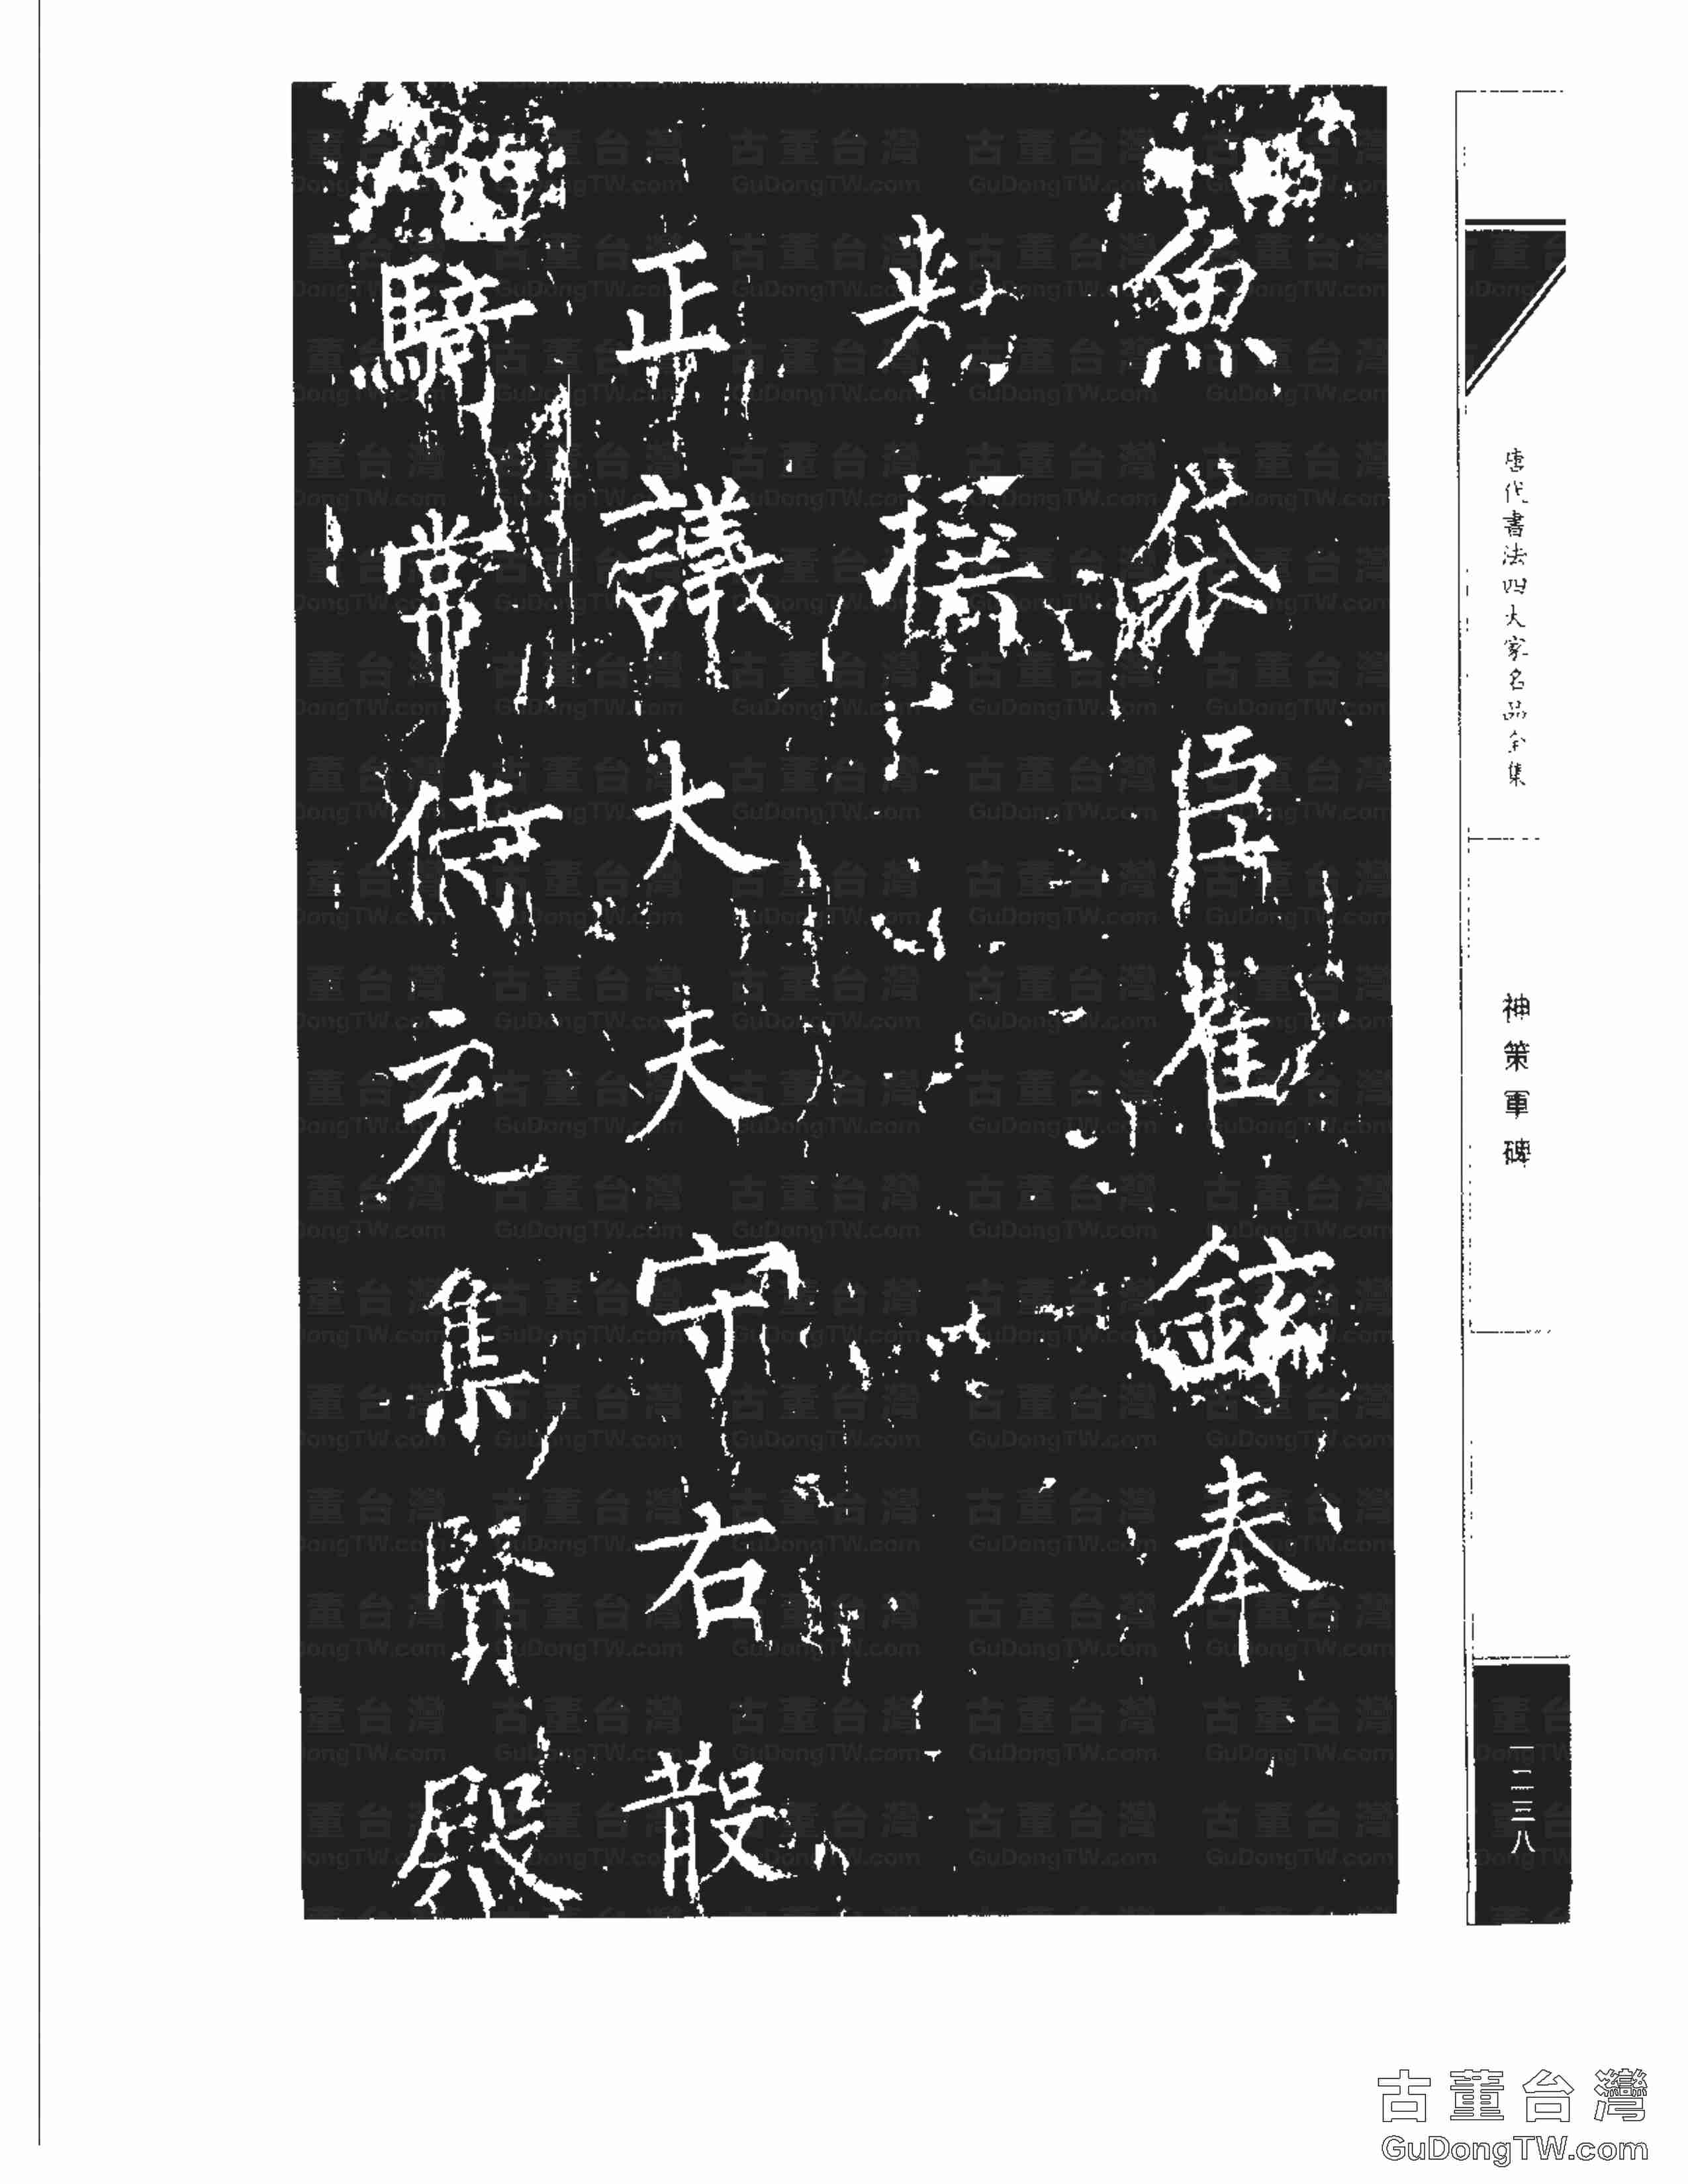 魚袋臣崔鉉奉
勅撰
正議大夫守右散
騎常侍充集賢殿
唐代書法四大家名品全集
神策軍碑
一二三八
古董台灣
GuDongTW.com